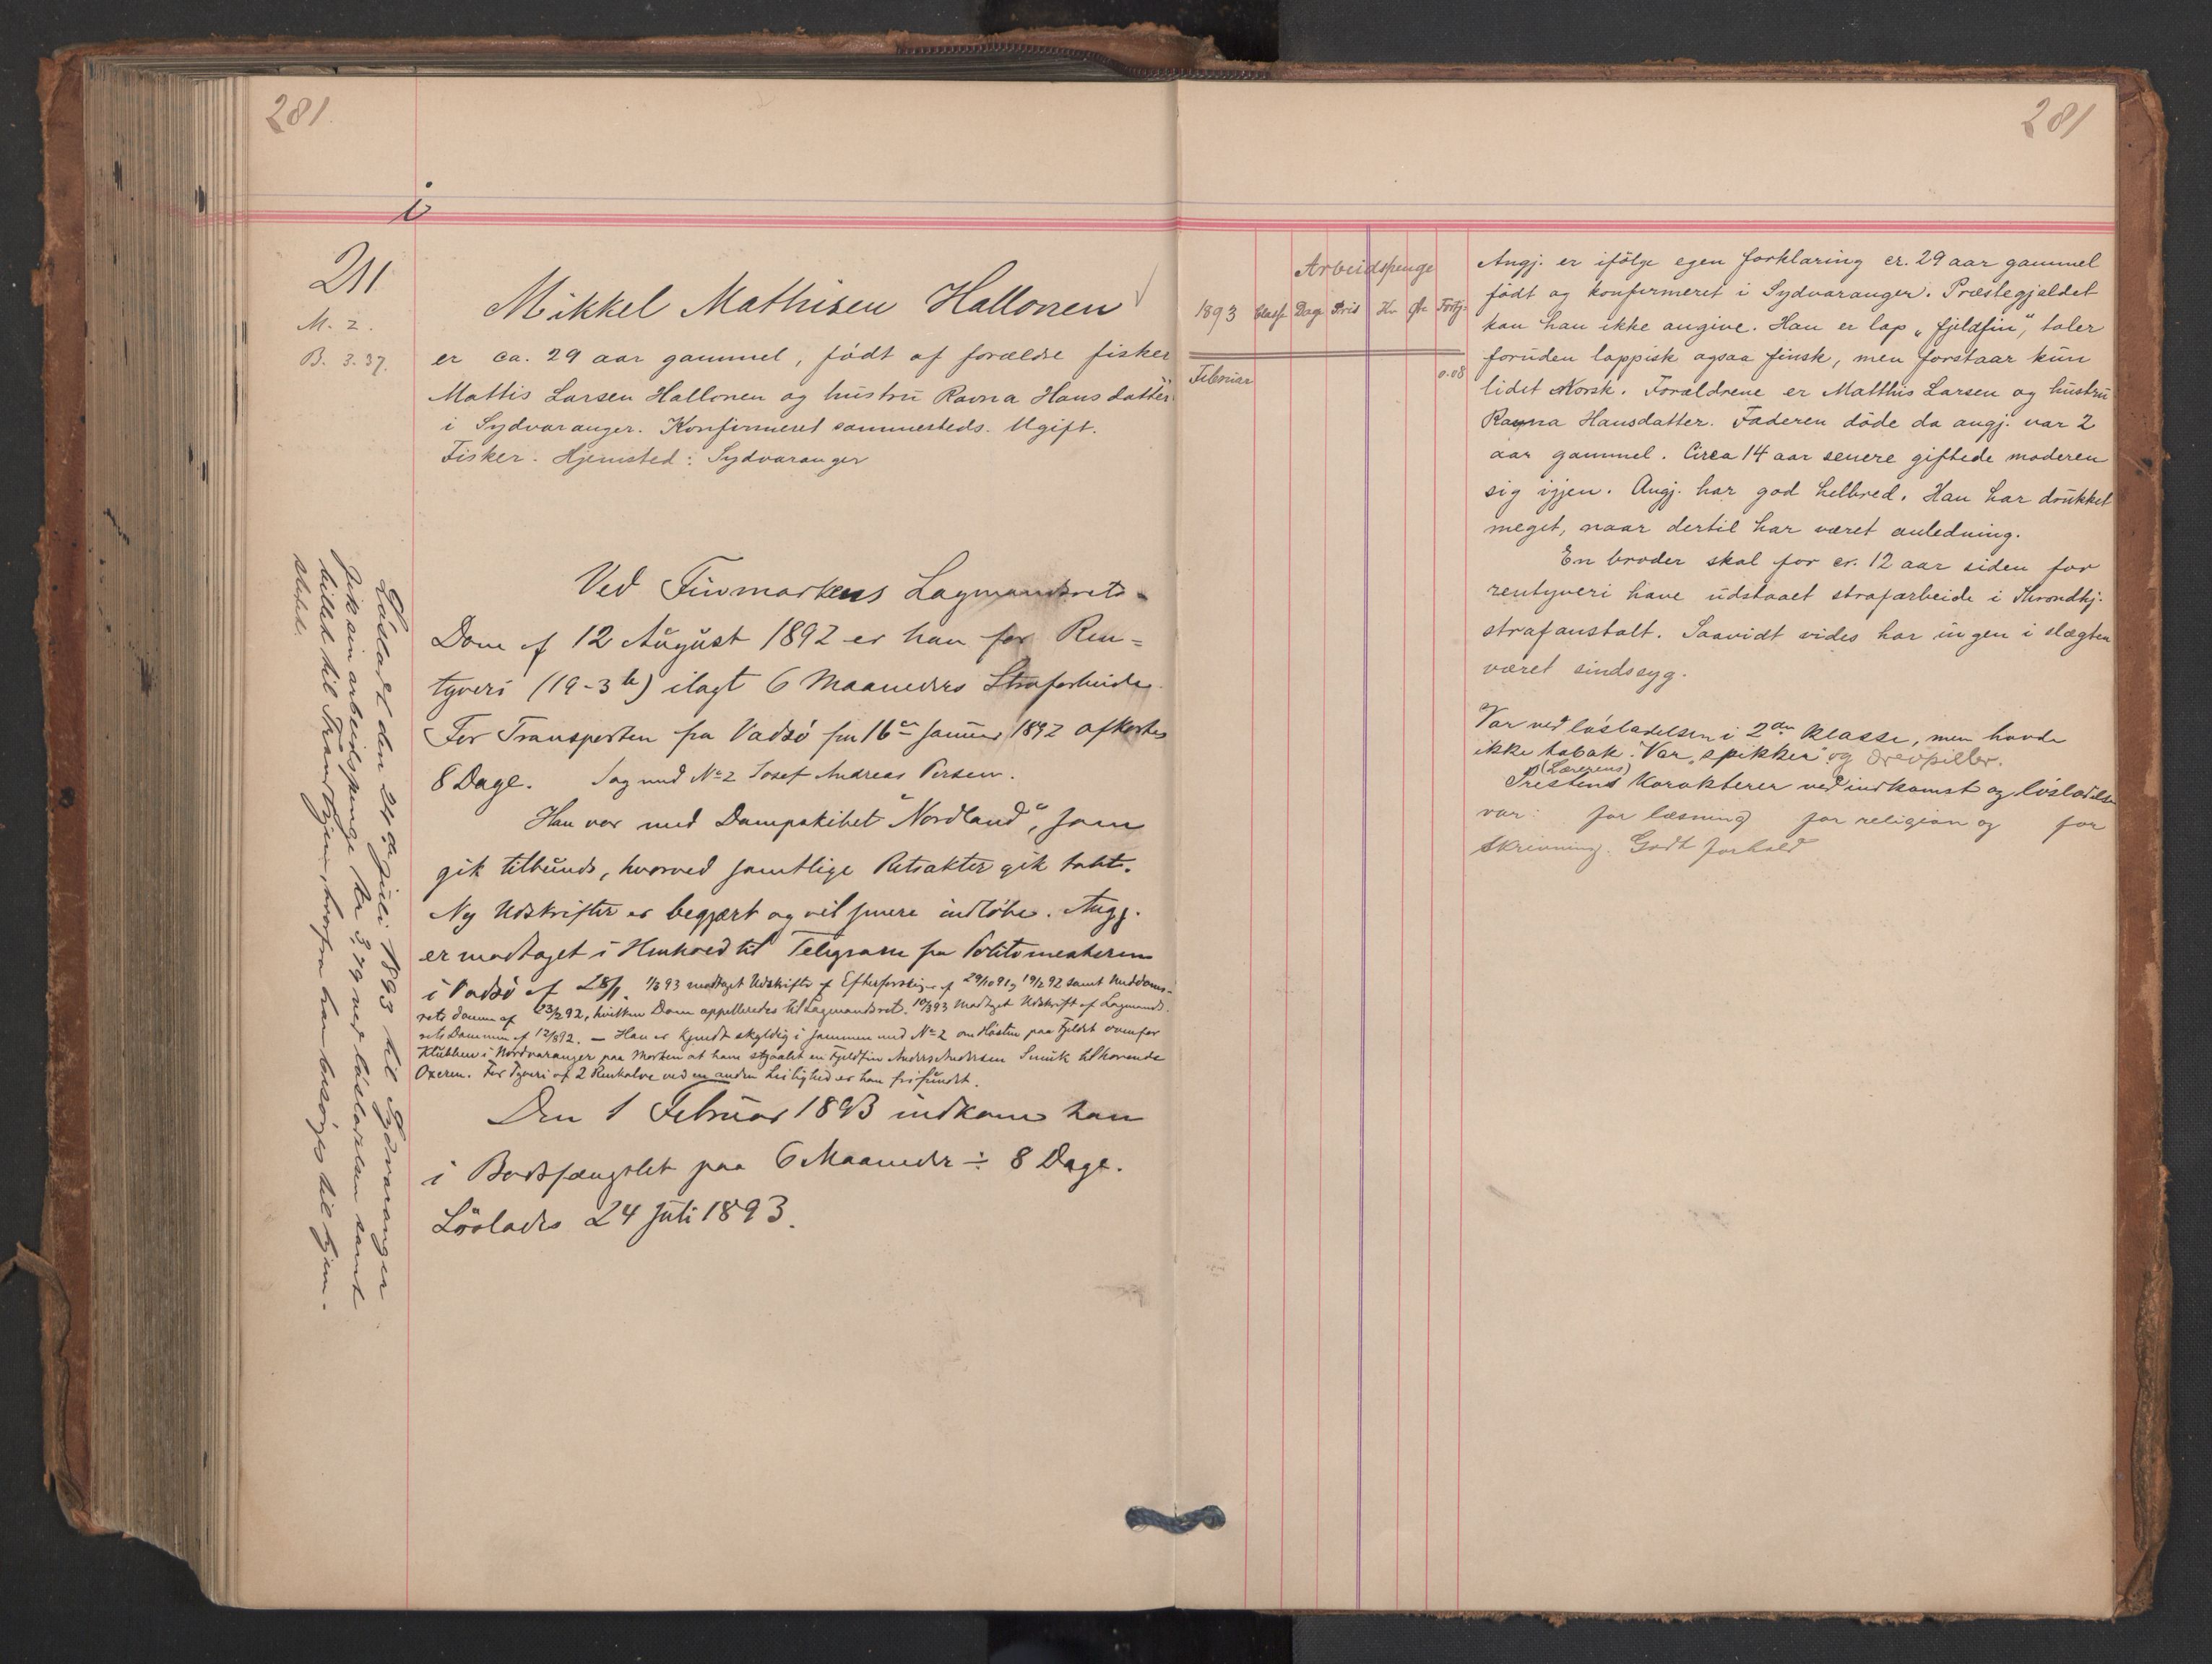 281
i
211
M. 2.
B. 3.37.
Mikkel Mathisen Hallonen
er ca. 29 aar gammel, födt af forældre fisker
Mattis Larsen Hallonen og hustru Ravna Hansdatter
i Sydvaranger. Konfirmeret sammesteds. Ugift.
Fisker. Hjemsted: Sydvaranger
Ved Finmarkens Lagmandsrets-
Dom af 12 August 1892 er han for Ren=
tyveri (19-3 ) ilagt 6 Maaneders Strafarbeide.
For Transporten fra Vadsö fra 16 Januar 1892 afkortes
8 Dage. Sag med No 2 Josef Andreas Persen.
Han var med Dampskibet "Nordland", som
gik tilbunds, hvorved samtlige Retsakter gik tabt.
Ny Udskrifter er begjært og vil senere indlöbe. Angj.
er modtaget i Henhold til Telegram fra Politimesteren
i Vadsö af 28/1. 1/3 93 modtaget Udskrifter af Efterforskning af 29/10 91 og 19/2 92 samt Meddoms-
rets dom af 23/2 92, hvilken Dom appelleredes til Lagmandsret. 10/3 93 Modtaget Udskrift af Lagmands-
rets Dommen af 12/8 92. — Han er kjendt skyldig i sammen med No 2 om Hösten paa Fjeldet ovenfor
Klubben i Nordvaranger paa Morten at have stjaalet en Fjeldfin Anders Andersen Smuk tilhörende
Oxeren. For Tyveri af 2 Renkalve ved en anden Leilighed er han frifundet.
Den 1 Februar 1893 indkom han
i Bodsfængslet paa 6 Maaneder ÷ 8 Dage.
Löslades 24 Juli 1893.
Lösladt den 24de Juli 1893 til Sydvaranger
Fik sin arbeidspenge Kr 3,79 ved lösladelsen samt
billet til Trondhjem, hvorfra han besörges til hjem-
stedet.
281
Arbeidspenge
1893 Classe Dage Pris Kr. Öre Fortj.
Februar 0.08
Angj. er ifölge egen forklaring cr. 29 aar gammel
födt og konfirmeret i Sydvaranger. Præstegjeldet
kan han ikke angive. Han er lap „fjeldfin", taler
foruden lappisk ogsaa finsk, men forstaar kun
lidet Norsk. Forældrene er Matthis Larsen og hustru
Ravna Hansdatter. Faderen döde da angj. var 2
aar gammel. Circa 14 aar senere giftede moderen
sig igjen. Angj. har god helbred. Han har drukket
meget, naar dertil har været anledning.
En broder skal for cr. 12 aar siden for
rentyveri have udstaaet strafarbeide i Throndhj.
strafanstalt. Saavidt vides har ingen i slægten
været sindssyg.
Var ved lösladelsen i 2den Klasse, men havde
ikke tabak. Var „spikker" og drevpiller.
(Lærerens)
Prestens Karakterer ved indkomst og lösladelse
var: for læsning for religion og for
Skrivning. Godt forhold